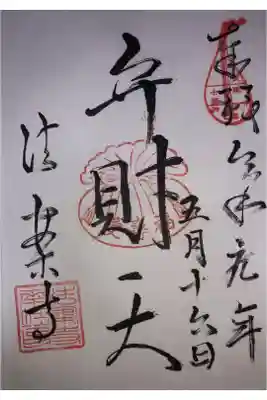 奉拝 令和元年
五月十六日
弁財天
法 寺